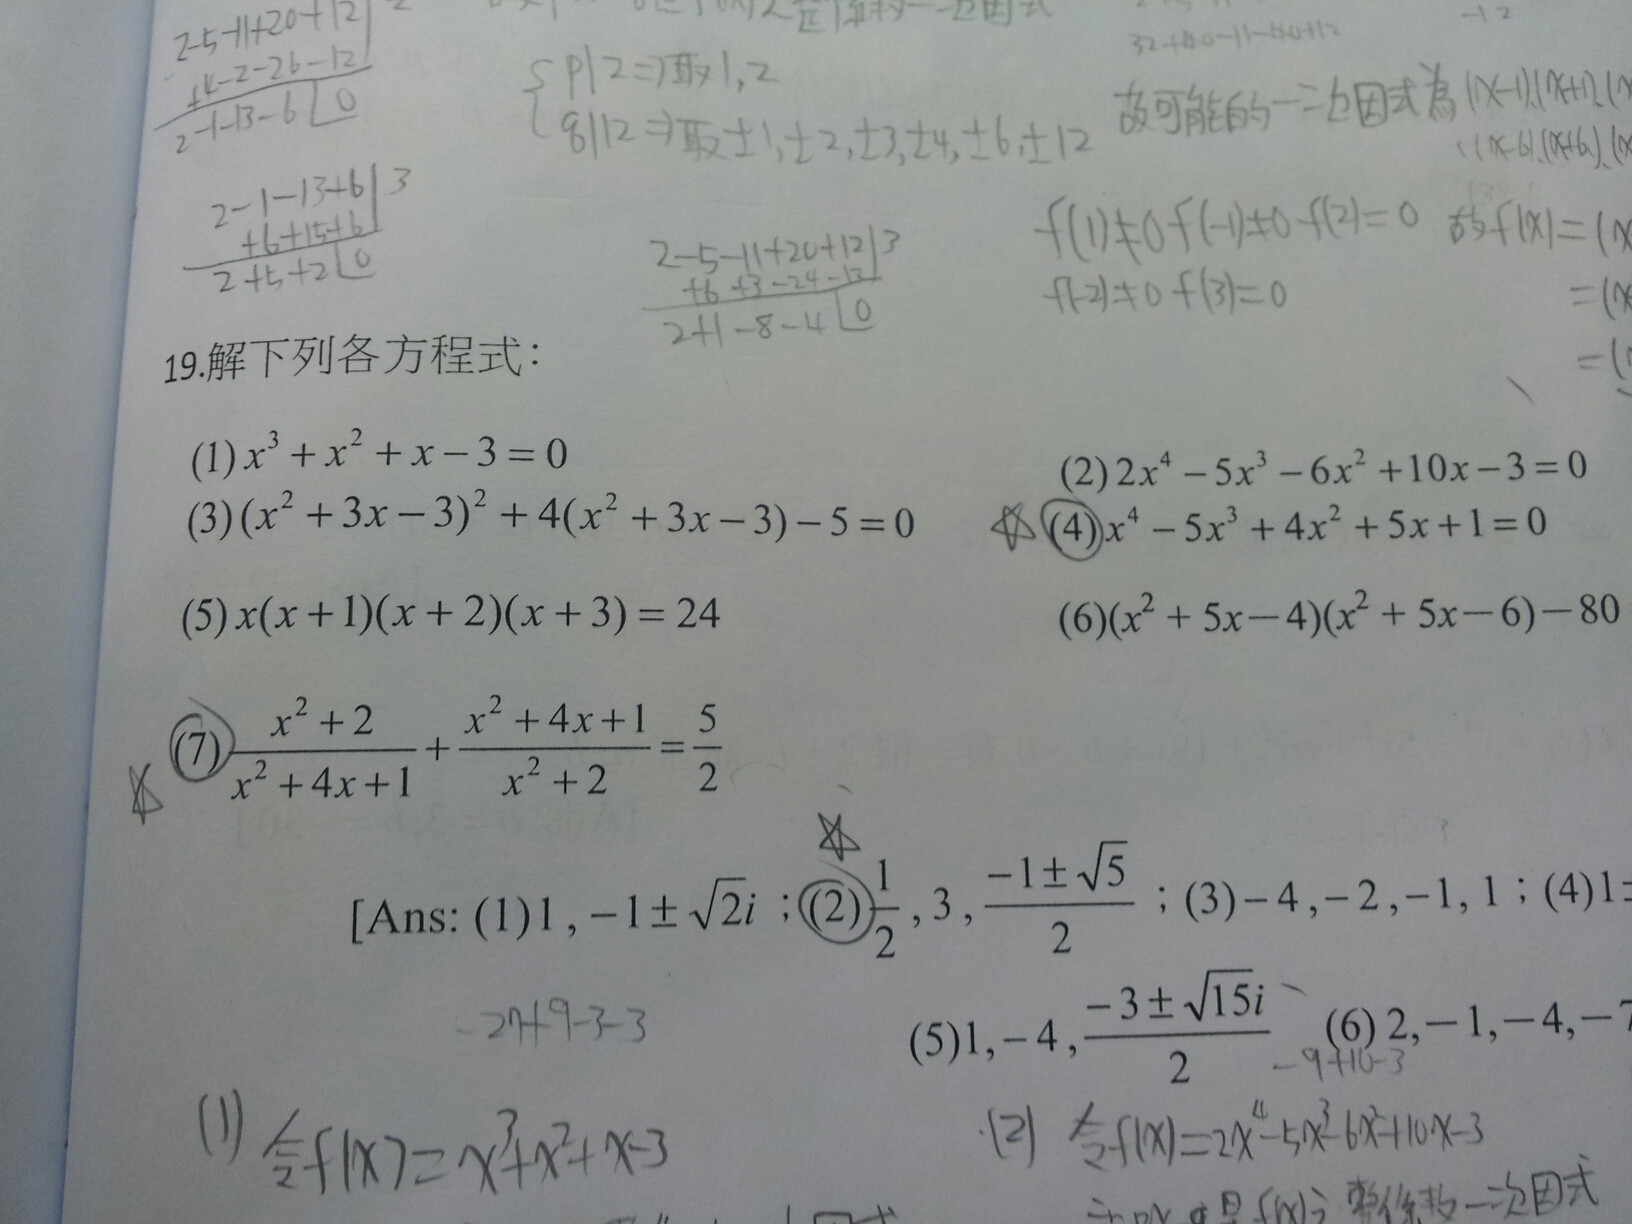 2-5-11+20+12
+4-2-26-12
2-1-13-6 0
p|2⇒取1,2
q|12⇒取±1,±2,±3,±4,±6,±12
32-40-11-40+12
-12
故可能的一次因式為(x-1),(x+1),(x
(x-6),(x+6),(x
2-1-13+6 3
+6+15+6
2+5+2 0
2-5-11+20+12 3
+6+3-24-12
2+1-8-4 0
f(1)≠0 f(-1)≠0 f(2)=0 故f(x)=(x
f(-2)≠0 f(3)=0 =(x
=(
19.解下列各方程式：
(1) x³+x²+x-3=0 (2) 2x⁴-5x³-6x²+10x-3=0
(3) (x²+3x-3)²+4(x²+3x-3)-5=0 (4) x⁴-5x³+4x²+5x+1=0
(5) x(x+1)(x+2)(x+3)=24 (6)(x²+5x-4)(x²+5x-6)-80
(7) (x²+2)/(x²+4x+1)+(x²+4x+1)/(x²+2)=5/2
[Ans: (1)1,-1±√2i ;(2)1/2,3,(-1±√5)/2 ;(3)-4,-2,-1,1 ;(4)1±
(5)1,-4,(-3±√15i)/2 (6)2,-1,-4,-7
-27+9-3-3
-9+10-3
(1) 令f(x)=x³+x²+x-3
(2) 令f(x)=2x⁴-5x³-6x²+10x-3
整係數一次因式